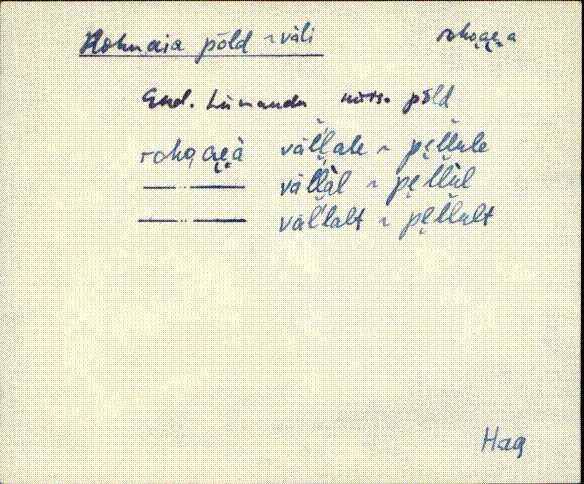 Rohuaia põld ~ väli
rohoaęa
End. Lümanda mõis. põld
rohoaęà väl̆l̆ale ~ pęl̆l̆ule
— ·· — väl̆l̆àl ~ pęl̆l̆ùl
— ·· — väl̆l̆alt ~ pęl̆l̆ult
Hag